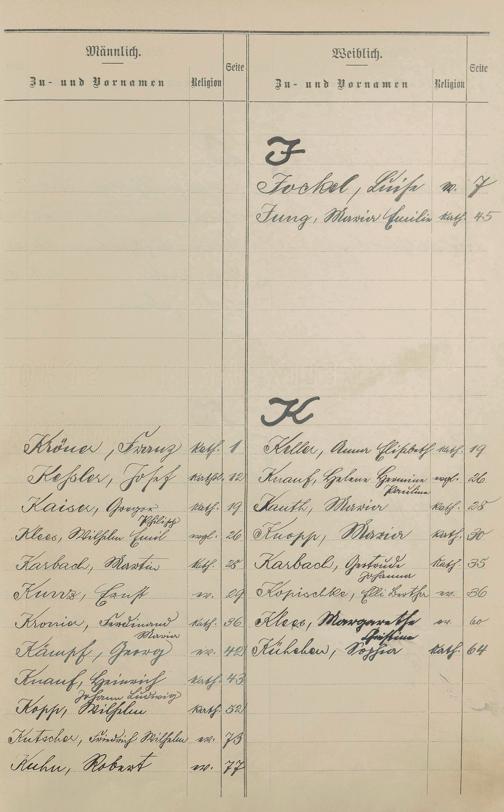 Männlich.
Zu- und Vornamen Religion Seite
Weiblich.
Zu- und Vornamen Religion Seite
J
Jockel, Luise ev. 7
Jung, Maria Emilie kath. 45
Kröner, Franz kath. 1
Kessler, Josef kathol. 12
Kaiser, George kath. 19
Philipp
Klees, Wilhelm Emil evgl. 26
Karbach, Martin kath. 28
Kunz, Ernst ev. 29
Ferdinand kath. 36
Maria
Kämpf, Georg ev. 42
Knauf, Heinrich kath. 43
Johann Ludwig
Kopp, Wilhelm kath. 52
Kutscher, Friedrich Wilhelm ev. 73
Kuhn, Robert ev. 77
K
Keller, Anna Elisabeth kath. 19
Knauf, Helene Hermine evgl. 26
Pauline
Kauth, Maria kath. 28
Knopp, Maria kath. 30
Karbach, Gertrude kath. 35
Johanna
Kopischke, Elli Bertha ev. 36
Klees, Margarethe ev. 60
Sophia kath. 64